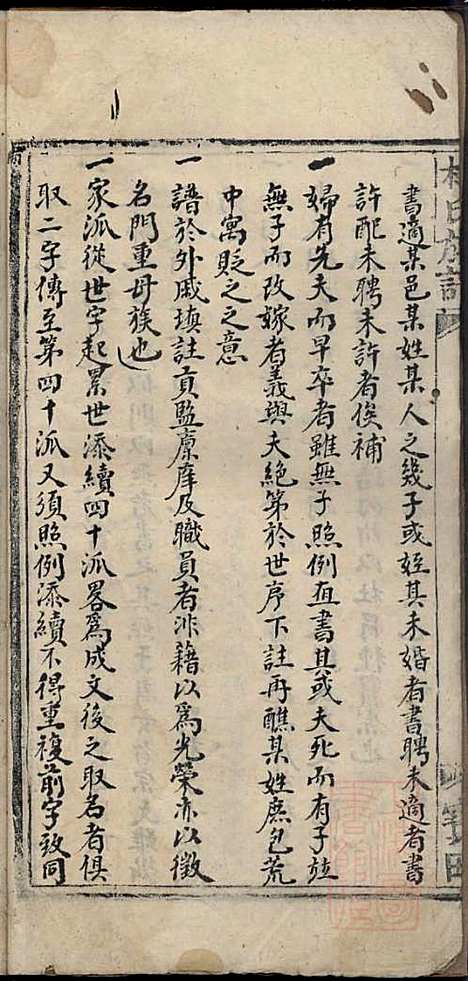 書適某邑某姓某人之幾子或姪其未婚者書聘未適者書
許配未聘未許者俟補
一婦有先夫而早卒者雖無子照例直書其或夫死而有子並
無子而改嫁者義與夫絕第於世序下註再醮某姓庶包荒
中寓貶之之意
一譜於外戚填註貢監廪庠及職員者非藉以爲光榮亦以徵
名門重母族也
一家派從世字起累世添續四十派畧爲成文後之取名者俱
取二字傳至第四十派又須照例添續不得重複前字致同